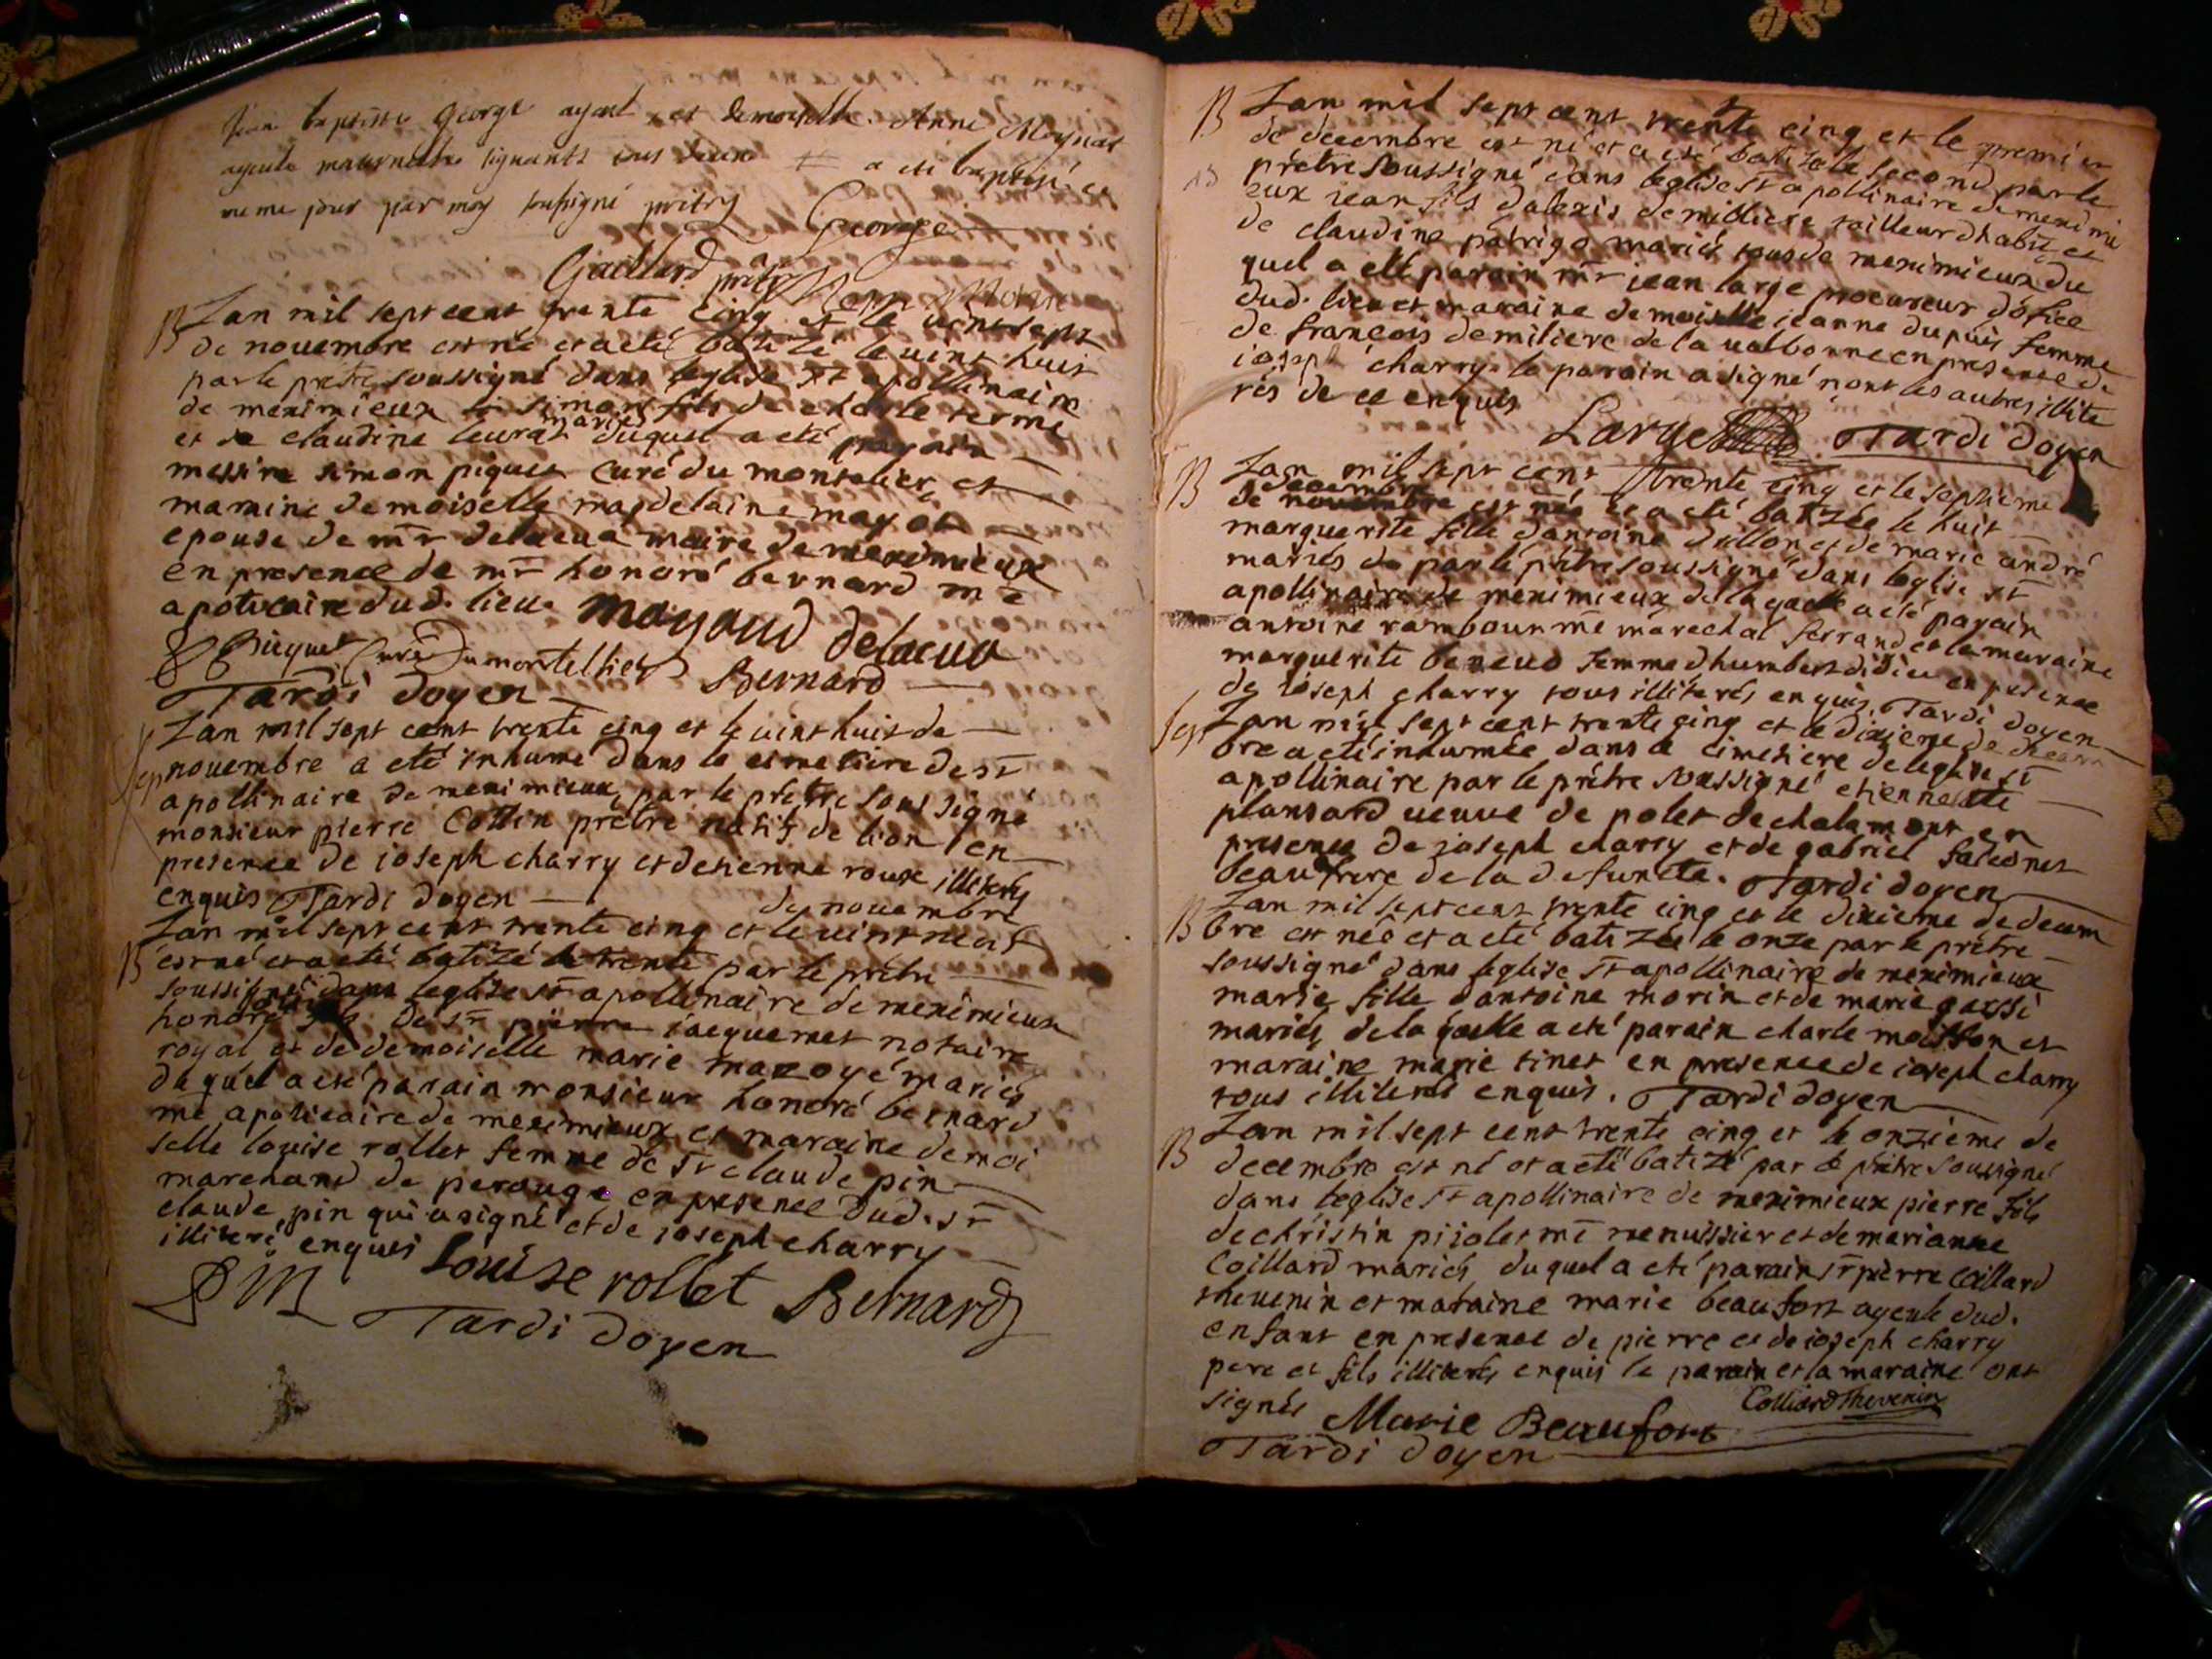 jean baptiste George ayeul et demoiselle Anne Meynal
ayeule maternelle signants tous deux a eté baptisé ce
meme jour par moy soussigné pritry
George
Gaillard prêtre
B Lan mil sept cent trente cinq et le vint sept
de novembre est né et a eté batizé le vint huit
par le prêtre soussigné dans leglise st apollinaire
de meximieux simon fils de charle terme
et de claudine leurat mariés duquel a eté parain
messire simon piquet curé du montelier et
maraine demoiselle magdelaine mayod
epouse de mr delacua maire de meximieux
en presence de mr honoré bernard me
apoticaire dud. lieu mayaud delacua
Piquet Curé Du montellier Bernard
Tardi doyen
Sep Lan mil sept cent trente cinq et le vint huit de
novembre a eté inhumé dans le cimetiere de st
apollinaire de meximieux, par le prêtre soussigné
monsieur pierre Collin prêtre natif de lion en
presence de ioseph charry et detienne roux illiterés
enquis Tardi doyen
de novembre
B Lan mil sept cent trente cinq et le vint neuf
est né et a eté batizé le trente par le prêtre
soussigné dans leglise st apollinaire de meximieux
honoré fils de sr pierre iacquemet notaire
royal et de demoiselle marie mazoyé mariés
duquel a eté parain monsieur honoré bernard
me apoticaire de meximieux et maraine demoi
selle louise rollet femme de sr claude pin
marchand de perouge en presence dud. sr
claude pin qui a signé et de ioseph charry
illiteré enquis Louise rollet Bernard
Tardi doyen
B Lan mil sept cent trente cinq et le premier
de decembre est né et a eté batizé le second par le
prêtre soussigné dans leglise st apollinaire de meximi
eux iean fils dalexis demiliere tailleur dhabit et
de claudine patrigo mariés tous de meximieux du
quel a eté parain mr iean large procureur dofice
dud. lieu et maraine demoiselle ieanne dupuis femme
de francois demiliere de la valbonne en presence de
ioseph charry le parain a signé nont les autres illite
rés de ce enquis
Large Tardi doyen
B Lan mil sept cent trente cinq et le septieme
decembre
de novembre est née et a eté batizée le huit
marguerite fille dantoine dullon et de marie andré
mariés de par le prêtre soussigné dans leglise st
apollinaire de meximieux de laquelle a eté parain
antoine rambour me marechal ferrand et la maraine
marguerite beneud femme dhumbert didieu en presence
de ioseph charry tous illiterés enquis Tardi doyen
Sep Lan mil sept cent trente cinq et le dixieme de decem
bre a eté inhumée dans le cimetiere de leglise st
apollinaire par le prêtre soussigné etiennette
plansard veuve de polet de chalamont en
presence de ioseph charry et de gabriel falconet
beaufrere de la defuncte. Tardi doyen
B Lan mil sept cent trente cinq et le dixieme de decem
bre est née et a eté batizée le onze par le prêtre
soussigné dans leglise st apollinaire de meximieux
marie fille dantoine morin et de marie garssi
mariés, de la quelle a eté parain charle moisson et
maraine marie tinet en presence de ioseph charry
tous illiterés enquis. Tardi doyen
B Lan mil sept cent trente cinq et le onzieme de
decembre est né et a eté batizé par le prêtre soussigné
dans leglise st apollinaire de meximieux pierre fils
de christin pijolet me menuissier et de marianne
Coillard mariés, du quel a eté parain sr pierre Coillard
thevenin et maraine marie beaufort ayeule dud.
enfant en presence de pierre et de ioseph charry
pere et fils illiterés enquis le parain et la maraine ont
signés Marie Beaufort Colliard Thevenin
Tardi doyen